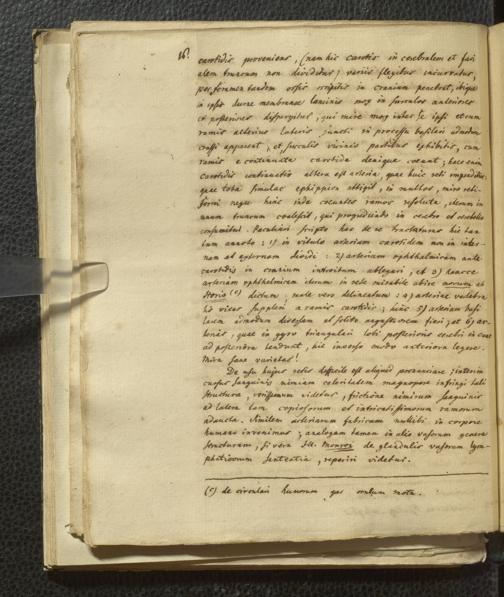 16.
carotidis proveniens, (nam hic carotis in cerebralem et faci
alem truncum non dividitur) variis flexibus incurvatus,
per foramen tandem ossis occipitis in cranium penetrat, ibique
in ipso durae membranae laminis mox in surculos anteriores
et posteriores dispergitur, qui mire mox inter se ipsi et cum
ramis alterius lateris juncti in processu basilari admodum
crassi apparent, et surculis vicinis partibus exhibitis, cum
ramis e continuata carotide denique coeunt; haec enim
carotidis continuatio altera est arteria, quae huic reti impenditur;
quae tota simulac ephippium attigit, in multos, miro reti-
formi nexu hinc inde coeuntes ramos resoluta, iterum in
unum truncum coalescit, qui progrediendo in cerebro et cerebello
consumitur. Peculiari scripto hac de re tractaturus hic tan
tum annoto: 1) in vitulo arteriam carotidem non in inter-
nam et externam dividi: 2) arteriam ophthalmicam ante
carotidis in cranium introitum ablegari, et 3) hancce
arteriam ophthalmicam iterum in rete mirabile abire
(c) dictum, male vero delineatum: 4) arteriae vertebra
lis vices suppleri a ramis carotidis; hinc 5) arteriam basi
larem eimodum diversam et solito angustiorem fieri; et 6) ar-
terias, quae in gyro triangulari lobi posterioris cerebri in eum
ad posteriora tendunt, hic inverso ordine anteriora legere.
Mira sane varietas!
De usu hujus retis difficile est aliquid pronunciare; interim
cursus sanguinis nimiam celeritatem magnopere infringi tali
structura, verissimum videtur, frictione nimirum sanguinis
ad latera tam copiosorum et intricatissimorum ramorum
adaucta. Similem arteriarum fabricam nullibi in corpore
humano invenimus; analogam tamen in alio vasorum genere
structuram, si vera Ill. Monroi de glandulis vasorum lym-
phaticorum sententia, reperiri videtur.
(c) de circulari humorum motu.